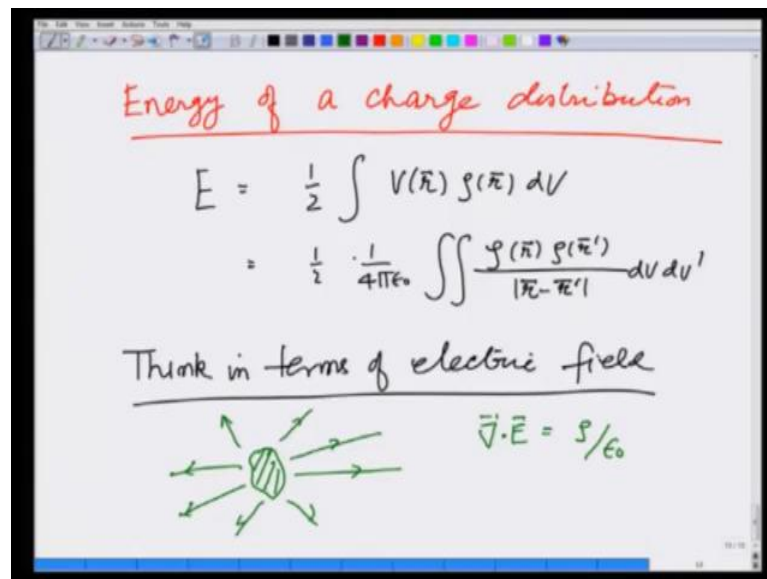 File Edit View Insert Actions Tools Help
Energy of a charge distribution
E = 1/2 ∫ V(r̄) ρ(r̄) dV
= 1/2 · 1/4πε₀ ∫∫ ρ(r̄) ρ(r̄') / |r̄-r̄'| dV dV'
Think in terms of electric field
∇̄·Ē = ρ/ε₀